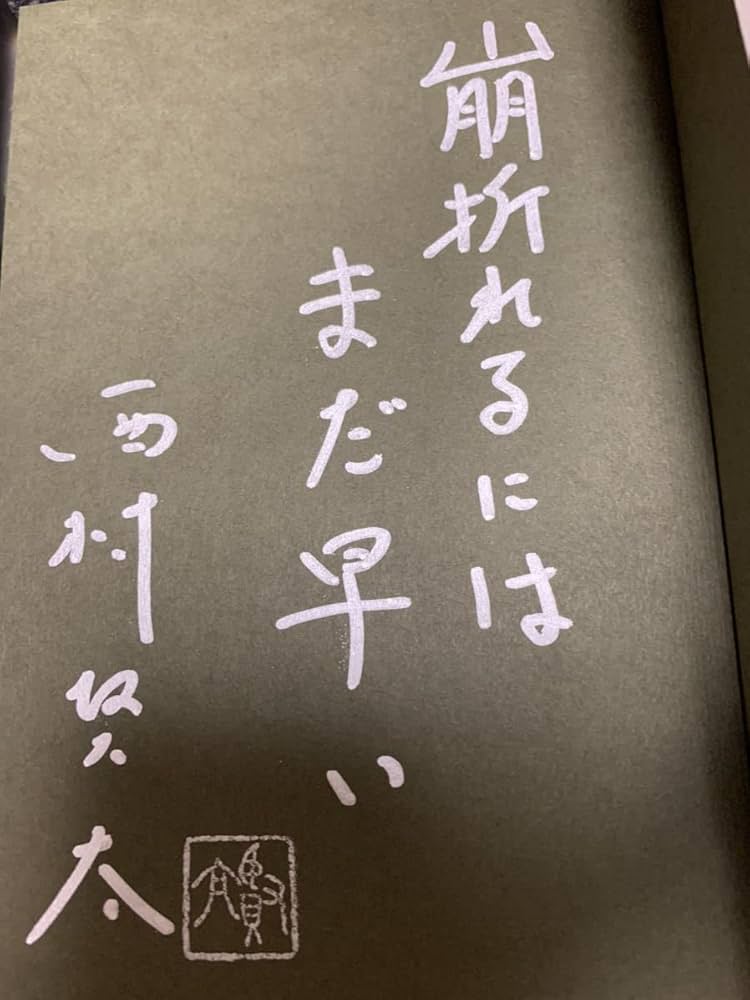 崩折れるには
まだ早い
西村賢太